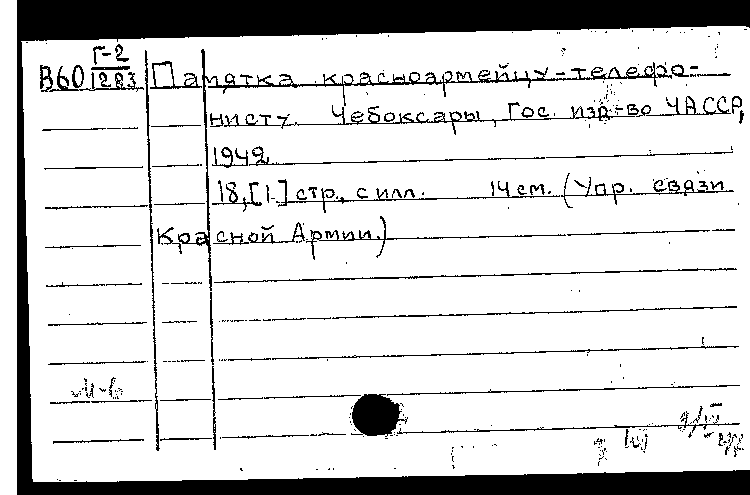 В60 Г-2/1283 Памятка красноармейцу-телефо-
нисту. Чебоксары, Гос. изд-во ЧАССР,
1942
18,[1] стр., с илл. 14 см. (Упр. связи
Красной Армии.)